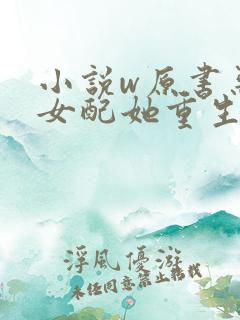 小説w原書
女配她重生
浮風優游
未經同意禁止轉載